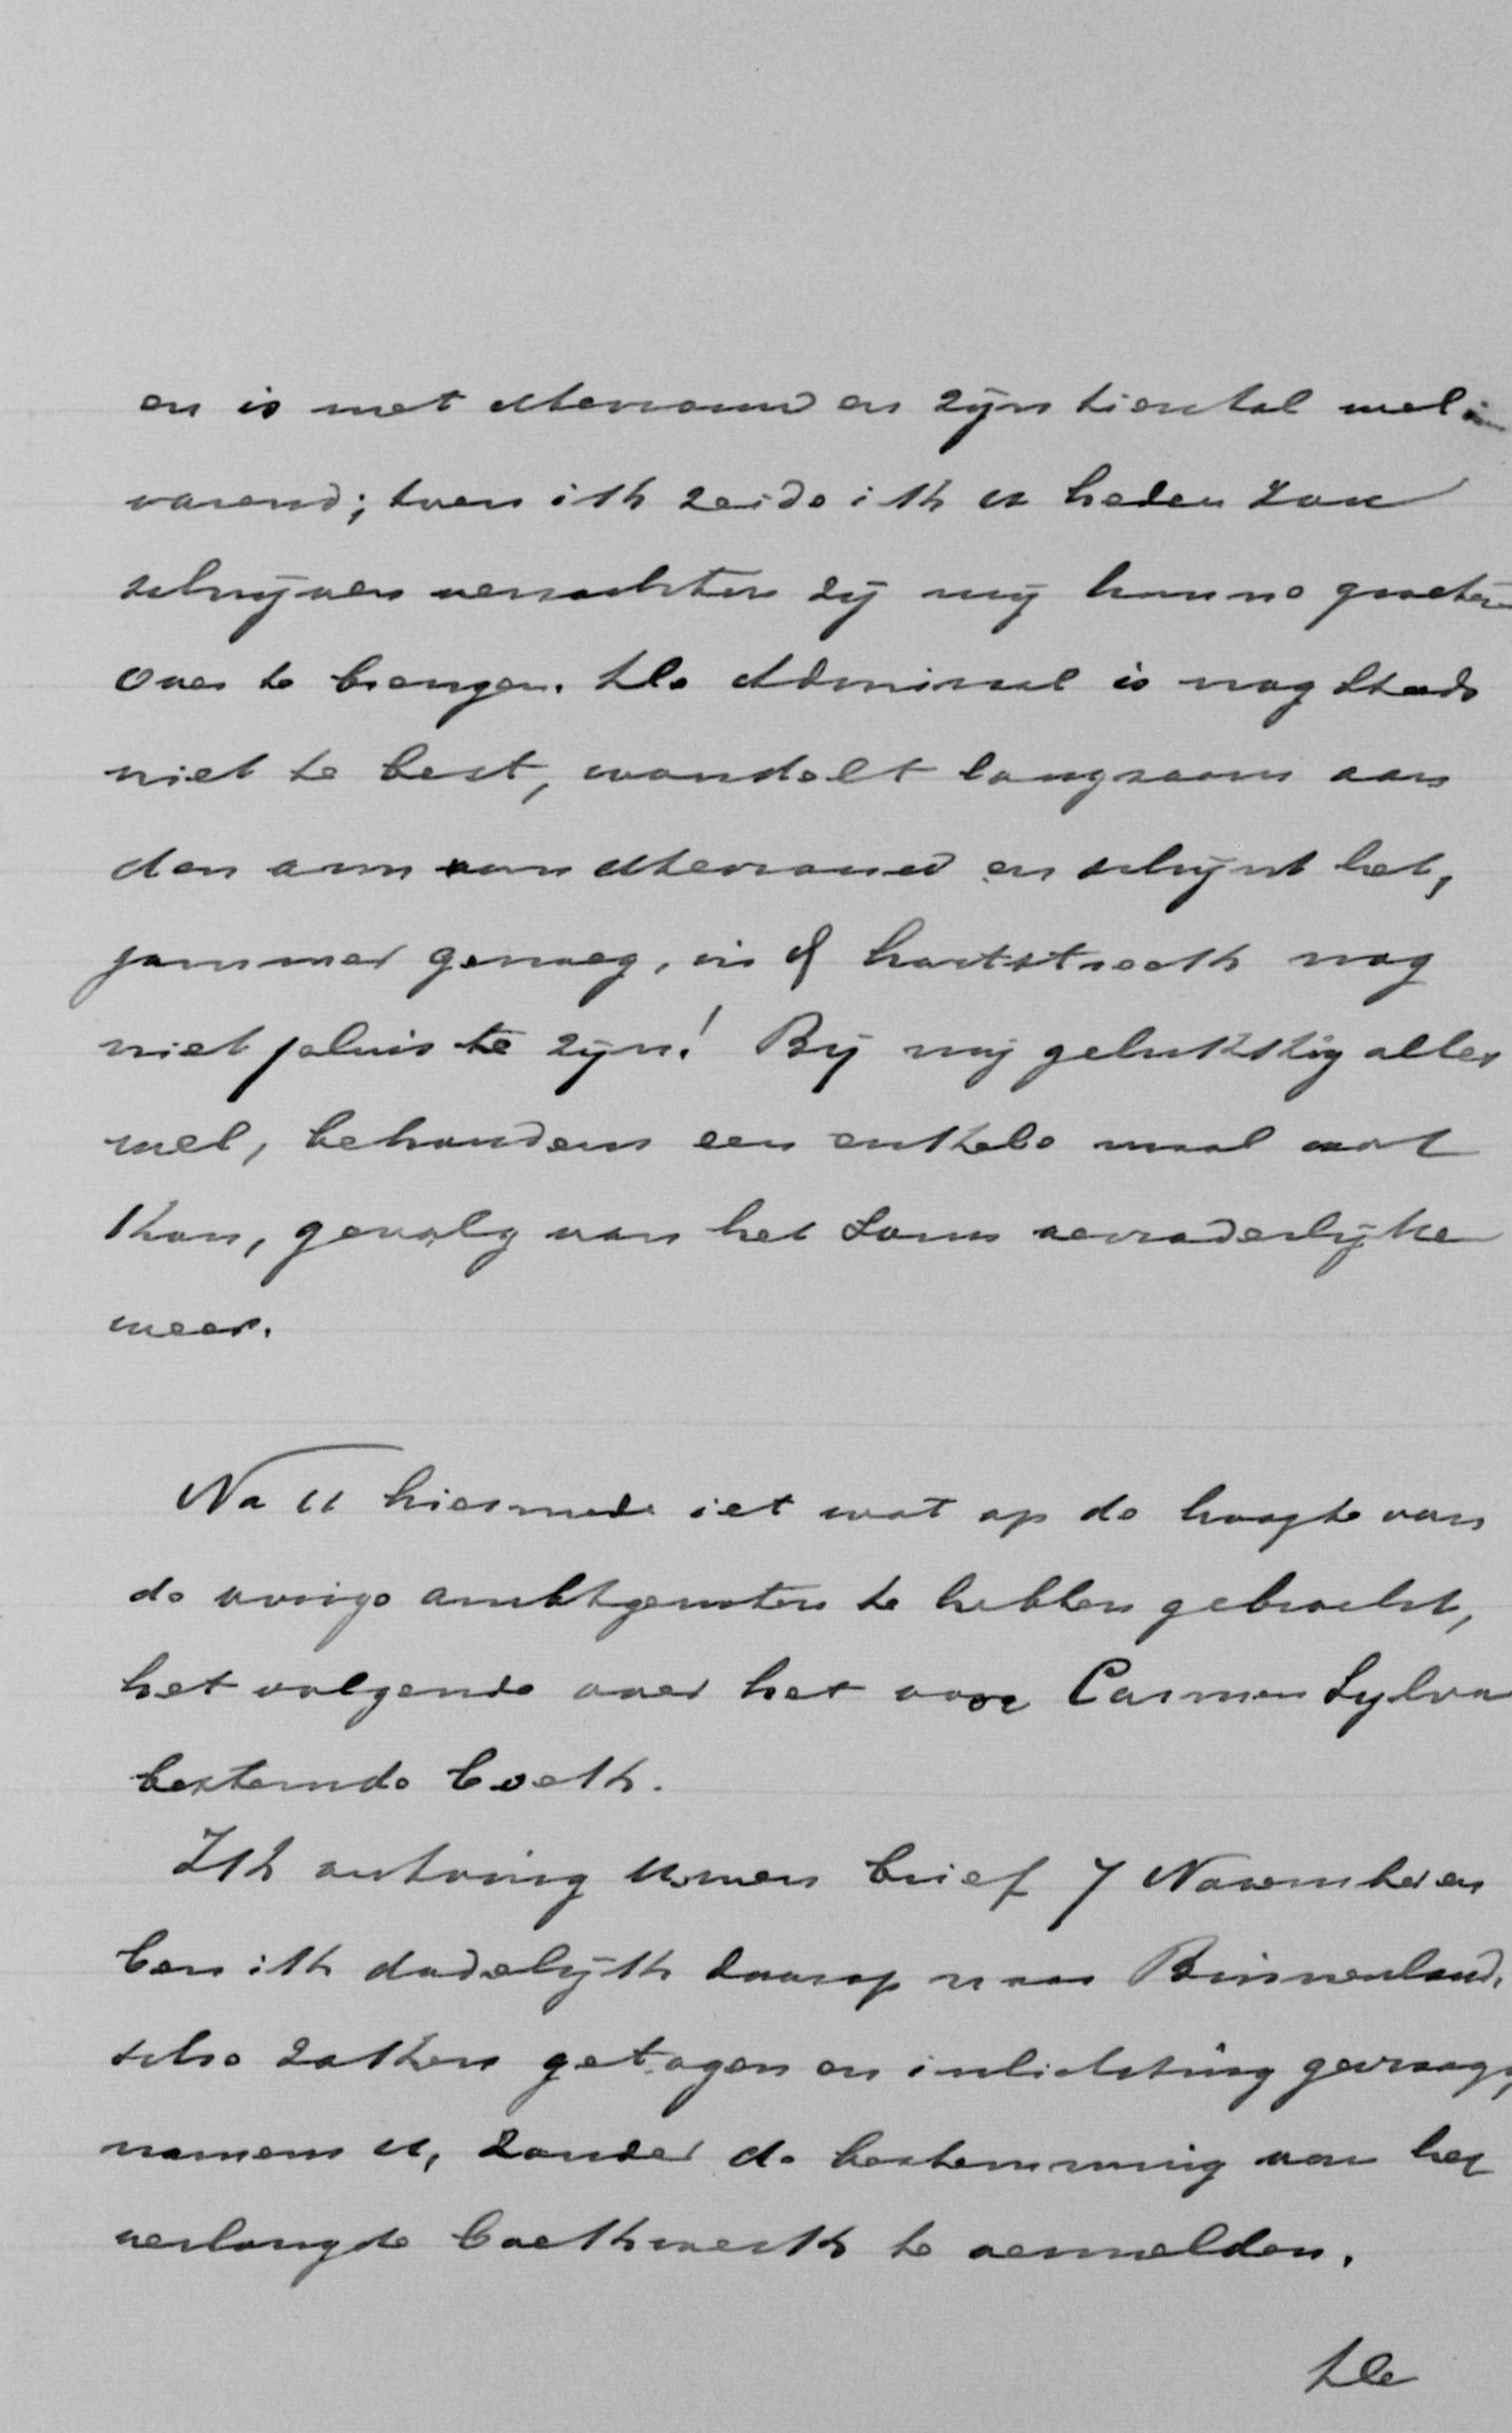 en is met Mevrouw en zijn tiental wel
varend; toen ik zeide ik u heden zou
schrijven verzochten zij mij hunne groeten
over te brengen. De Admiraal is nog steeds
niet te best, wandelt langzaam aan
den arm van Mevrouw en schijnt het,
jammer genoeg, in de hartstreek nog
niet pluis te zijn! Bij mij gelukkig alles
wel, behoudens een enkele maal wat
kou, gevolg van het soms verraderlijke
weer.
Na u hiermede iet wat op de hoogte van
de vorige ambtgenoten te hebben gebracht,
het volgende over het voor Carmen Sylva
bestemde boek.
Ik ontving Uwen brief 7 November en
ben ik dadelijk daarop naar Binnenland.
sche zaken getogen en inlichting gevraagd,
namens u, zonder de bestemming van het
verlangde boekwerk te vermelden.
De